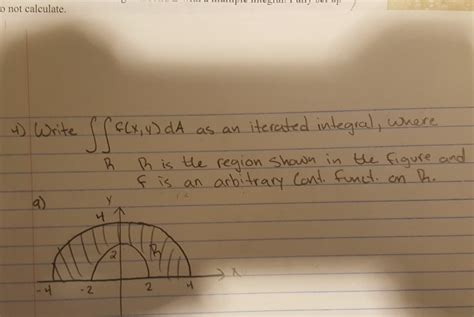 o not calculate.
multiple integral. Fully set up
4) Write ∬ f(x,y) dA as an iterated integral, where
R R is the region shown in the figure and
f is an arbitrary Cont. funct. on R.
a)
y
4
2 R
x
-4 -2 2 4